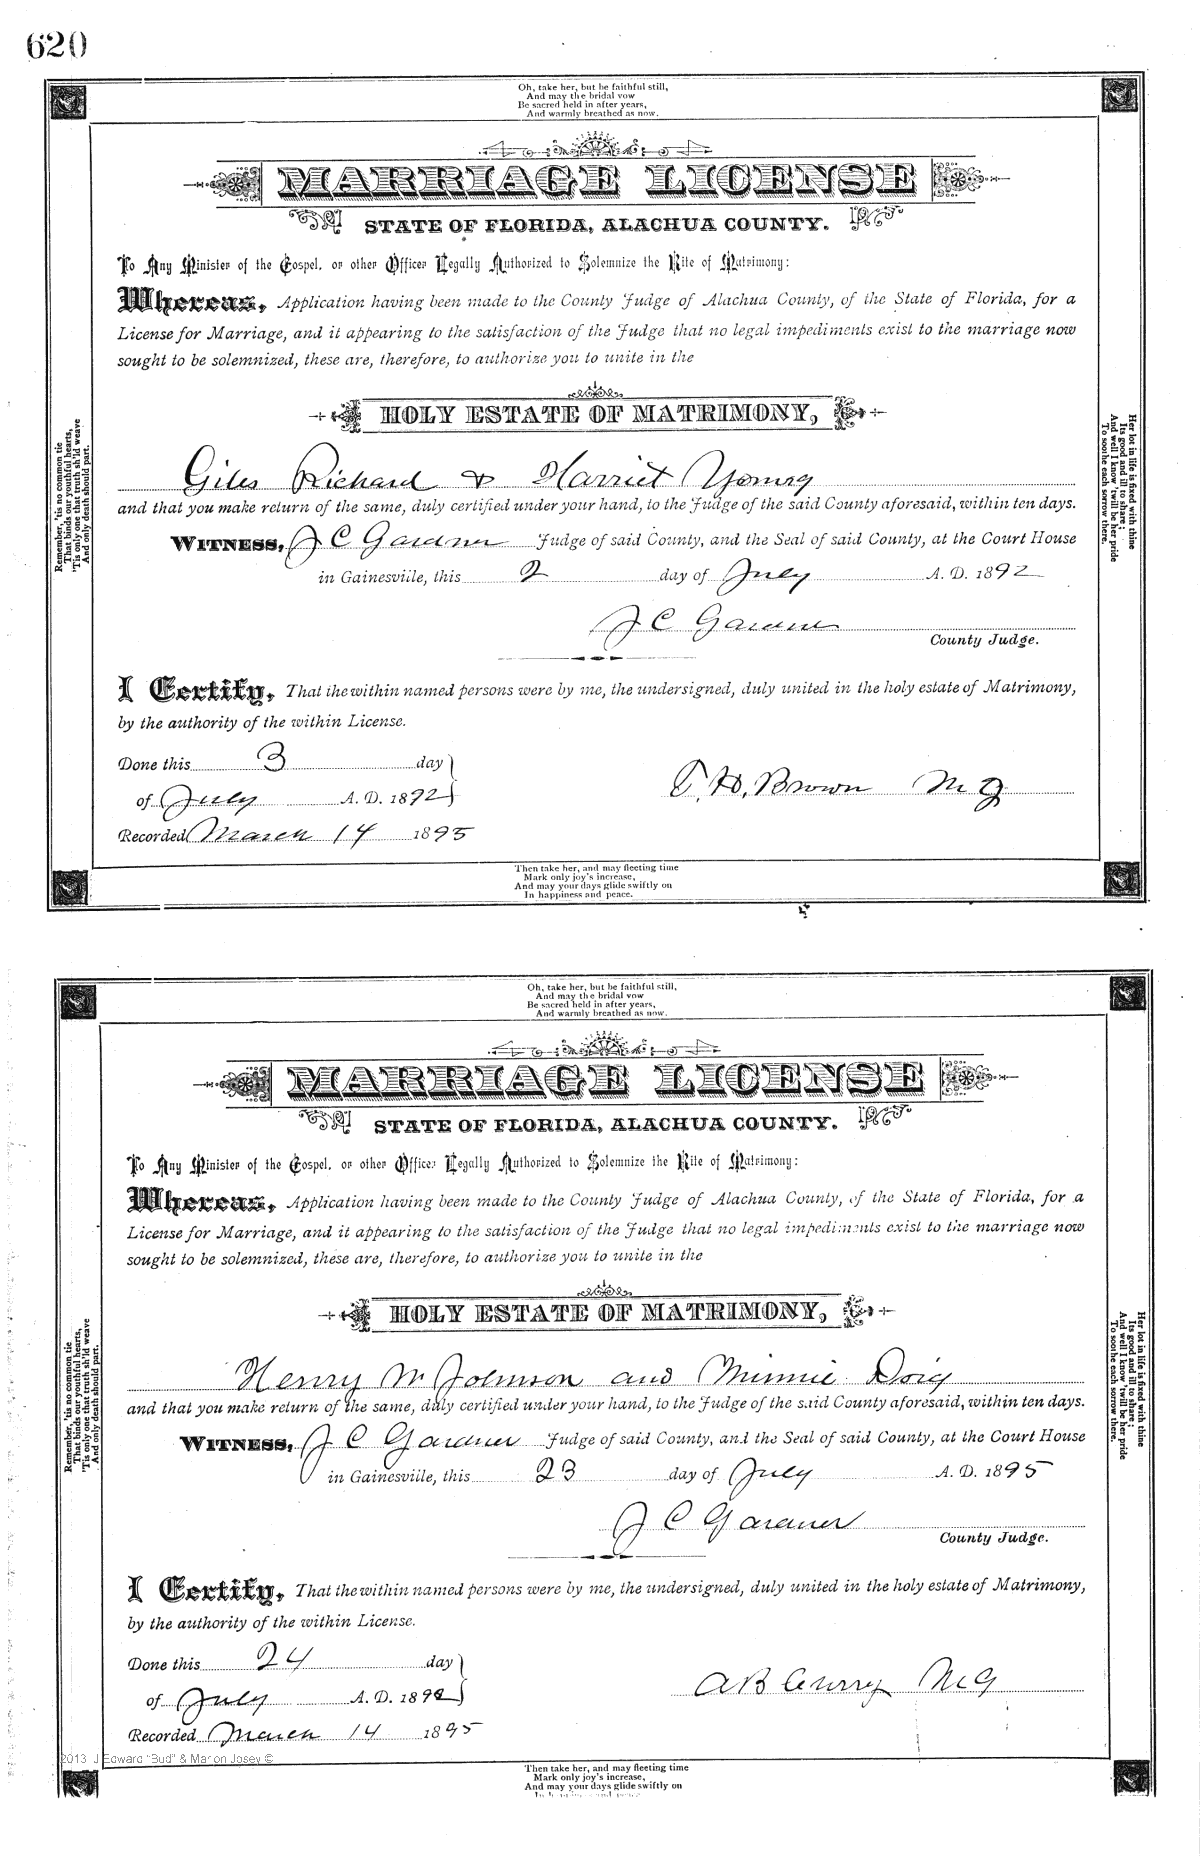 620
Oh, take her, but be faithful still,
And may the bridal vow
Be sacred held in after years,
And warmly breathed as now.
MARRIAGE LICENSE
STATE OF FLORIDA, ALACHUA COUNTY.
To Any Minister of the Gospel, or other Officer Legally Authorized to Solemnize the Rite of Matrimony:
Whereas, Application having been made to the County Judge of Alachua County, of the State of Florida, for a
License for Marriage, and it appearing to the satisfaction of the Judge that no legal impediments exist to the marriage now
sought to be solemnized, these are, therefore, to authorize you to unite in the
HOLY ESTATE OF MATRIMONY,
Giles Richard & Harriet Young
and that you make return of the same, duly certified under your hand, to the Judge of the said County aforesaid, within ten days.
WITNESS, J C Gardner Judge of said County, and the Seal of said County, at the Court House
in Gainesville, this 2 day of July A. D. 1892
J C Gardner
County Judge.
I Certify, That the within named persons were by me, the undersigned, duly united in the holy estate of Matrimony,
by the authority of the within License.
Done this 3 day
of July A. D. 1892
T. H. Brown M G
Recorded March 14 1895
Remember, 'tis no common tie
That binds our youthful hearts,
'Tis only one that truth sh'ld weave
And only death should part.
Her lot in life is fixed with thine
Its good and ill to share;
And well I know 'twill be her pride
To soothe each sorrow there.
Then take her, and may fleeting time
Mark only joy's increase,
And may your days glide swiftly on
In happiness and peace.
Oh, take her, but be faithful still,
And may the bridal vow
Be sacred held in after years,
And warmly breathed as now.
MARRIAGE LICENSE
STATE OF FLORIDA, ALACHUA COUNTY.
To Any Minister of the Gospel, or other Officer Legally Authorized to Solemnize the Rite of Matrimony:
Whereas, Application having been made to the County Judge of Alachua County, of the State of Florida, for a
License for Marriage, and it appearing to the satisfaction of the Judge that no legal impediments exist to the marriage now
sought to be solemnized, these are, therefore, to authorize you to unite in the
HOLY ESTATE OF MATRIMONY,
Henry W Johnson and Minnie Doig
and that you make return of the same, duly certified under your hand, to the Judge of the said County aforesaid, within ten days.
WITNESS, J C Gardner Judge of said County, and the Seal of said County, at the Court House
in Gainesville, this 23 day of July A. D. 1895
J C Gardner
County Judge.
I Certify, That the within named persons were by me, the undersigned, duly united in the holy estate of Matrimony,
by the authority of the within License.
Done this 24 day
of July A. D. 189
A B Curry M G
Recorded March 14 1895
Remember, 'tis no common tie
That binds our youthful hearts,
'Tis only one that truth sh'ld weave
And only death should part.
Her lot in life is fixed with thine
Its good and ill to share;
And well I know 'twill be her pride
To soothe each sorrow there.
2013 J Edward "Bud" & Marion Josey ©
Then take her, and may fleeting time
Mark only joy's increase,
And may your days glide swiftly on
In happiness and peace